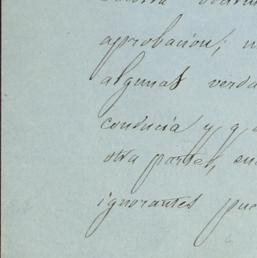 aprobacion; 
algunas verda
conducia y q
otra parte, en
ignorantes pue